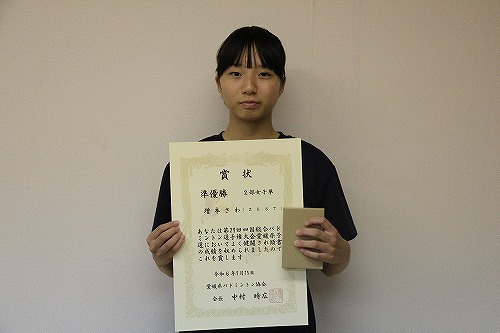 賞状
準優勝 2部女子単
増本さわ(2667)
あなたは第39回四国総合バド
ミントン選手権大会愛媛県予
選においてよく健闘され頭書
の成績を収められましたので
これを賞します
令和6年7月15日
愛媛県バドミントン協会
会長 中村時広